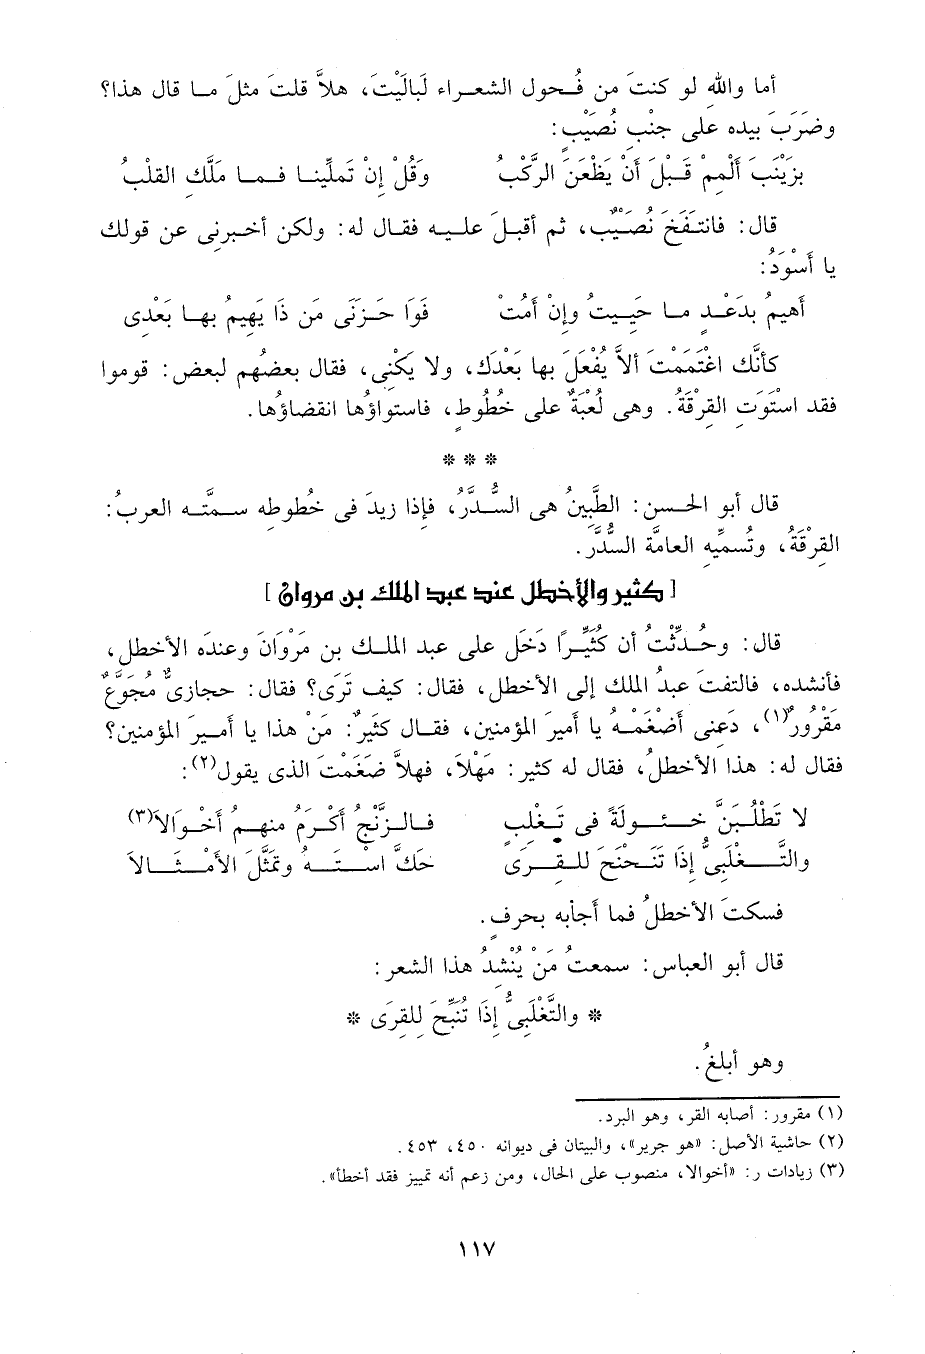 أما والله لو كنتَ من فُحول الشعراء لَبَالَيْتَ، هلاَّ قلتَ مثلَ ما قال هذا؟
وضَرَبَ بيده على جنْبِ نُصَيْبٍ:
بزَيْنَبَ أَلْمِمْ قَبْلَ أَنْ يَظْعَنَ الرَّكْبُ وَقُلْ إنْ تَملِّينا فما مَلَّكِ القلْبُ
قال: فانتَفَخَ نُصَيْبٌ، ثم أقبلَ عليه فقال له: ولكن أخبرنى عن قولك
يا أَسْوَدُ:
أَهيمُ بدَعْدٍ ما حَيِيتُ وإنْ أَمُتْ فَوَا حَزَنَى مَن ذَا يَهِيمُ بها بَعْدى
كأنَّك اغْتَمَمْتَ ألاَّ يُفْعَلَ بها بَعْدَكَ، ولا يَكْنِى، فقال بعضُهم لبعض: قوموا
فقد استَوَتِ القِرْقَةُ. وهى لُعْبَةٌ على خُطُوطٍ، فاستواؤُها انقضاؤُها.
* * *
قال أبو الحسن: الطَّبِينُ هى السُّدَّرُ، فإذا زيدَ فى خُطوطه سمَّته العربُ:
القِرْقَةُ، وتُسمِّيه العامَّة السُّدَّرَ.
[ كثير والأخطل عند عبد الملك بن مروان ]
قال: وحُدِّثْتُ أن كُثَيِّرًا دَخَل على عبد الملك بن مَرْوَانَ وعندَه الأخطل،
فأنشده، فالتفتَ عبدُ الملك إلى الأخطل، فقال: كيف تَرَى؟ فقال: حجازىٌّ مُجوَّعٌ
مَقْرُورٌ(١)، دَعنى أَضْغَمْهُ يا أميرَ المؤمنين، فقال كثَيرٌ: مَنْ هذا يا أميرَ المؤمنين؟
فقال له: هذا الأخطلُ، فقال له كثير: مَهْلاً، فهلاَّ ضَغَمْتَ الذى يقول(٢):
لا تَطْلُبَنَّ خُئولَةً فى تَغْلِبٍ فالزَّنْجُ أَكْرَمُ منهمُ أَخْوَالاَ(٣)
والتَّغْلَبِىُّ إذَا تَنَحْنَحَ للقِرَى حَكَّ اسْتَهُ وتَمثَّلَ الأَمْثَالاَ
فسكتَ الأخطلُ فما أجابه بحرفٍ.
قال أبو العباس: سمعتُ مَنْ يُنْشِدُ هذا الشعر:
* والتَّغْلَبِىُّ إذَا تُنَبِّحَ لِلقِرَى *
وهو أبلغُ.
(١) مقرور: أصابه القر، وهو البرد.
(٢) حاشية الأصل: «هو جرير»، والبيتان فى ديوانه ٤٥٠، ٤٥٣.
(٣) زيادات ر: «أخوالا، منصوب على الحال، ومن زعم أنه تمييز فقد أخطأ».
١١٧